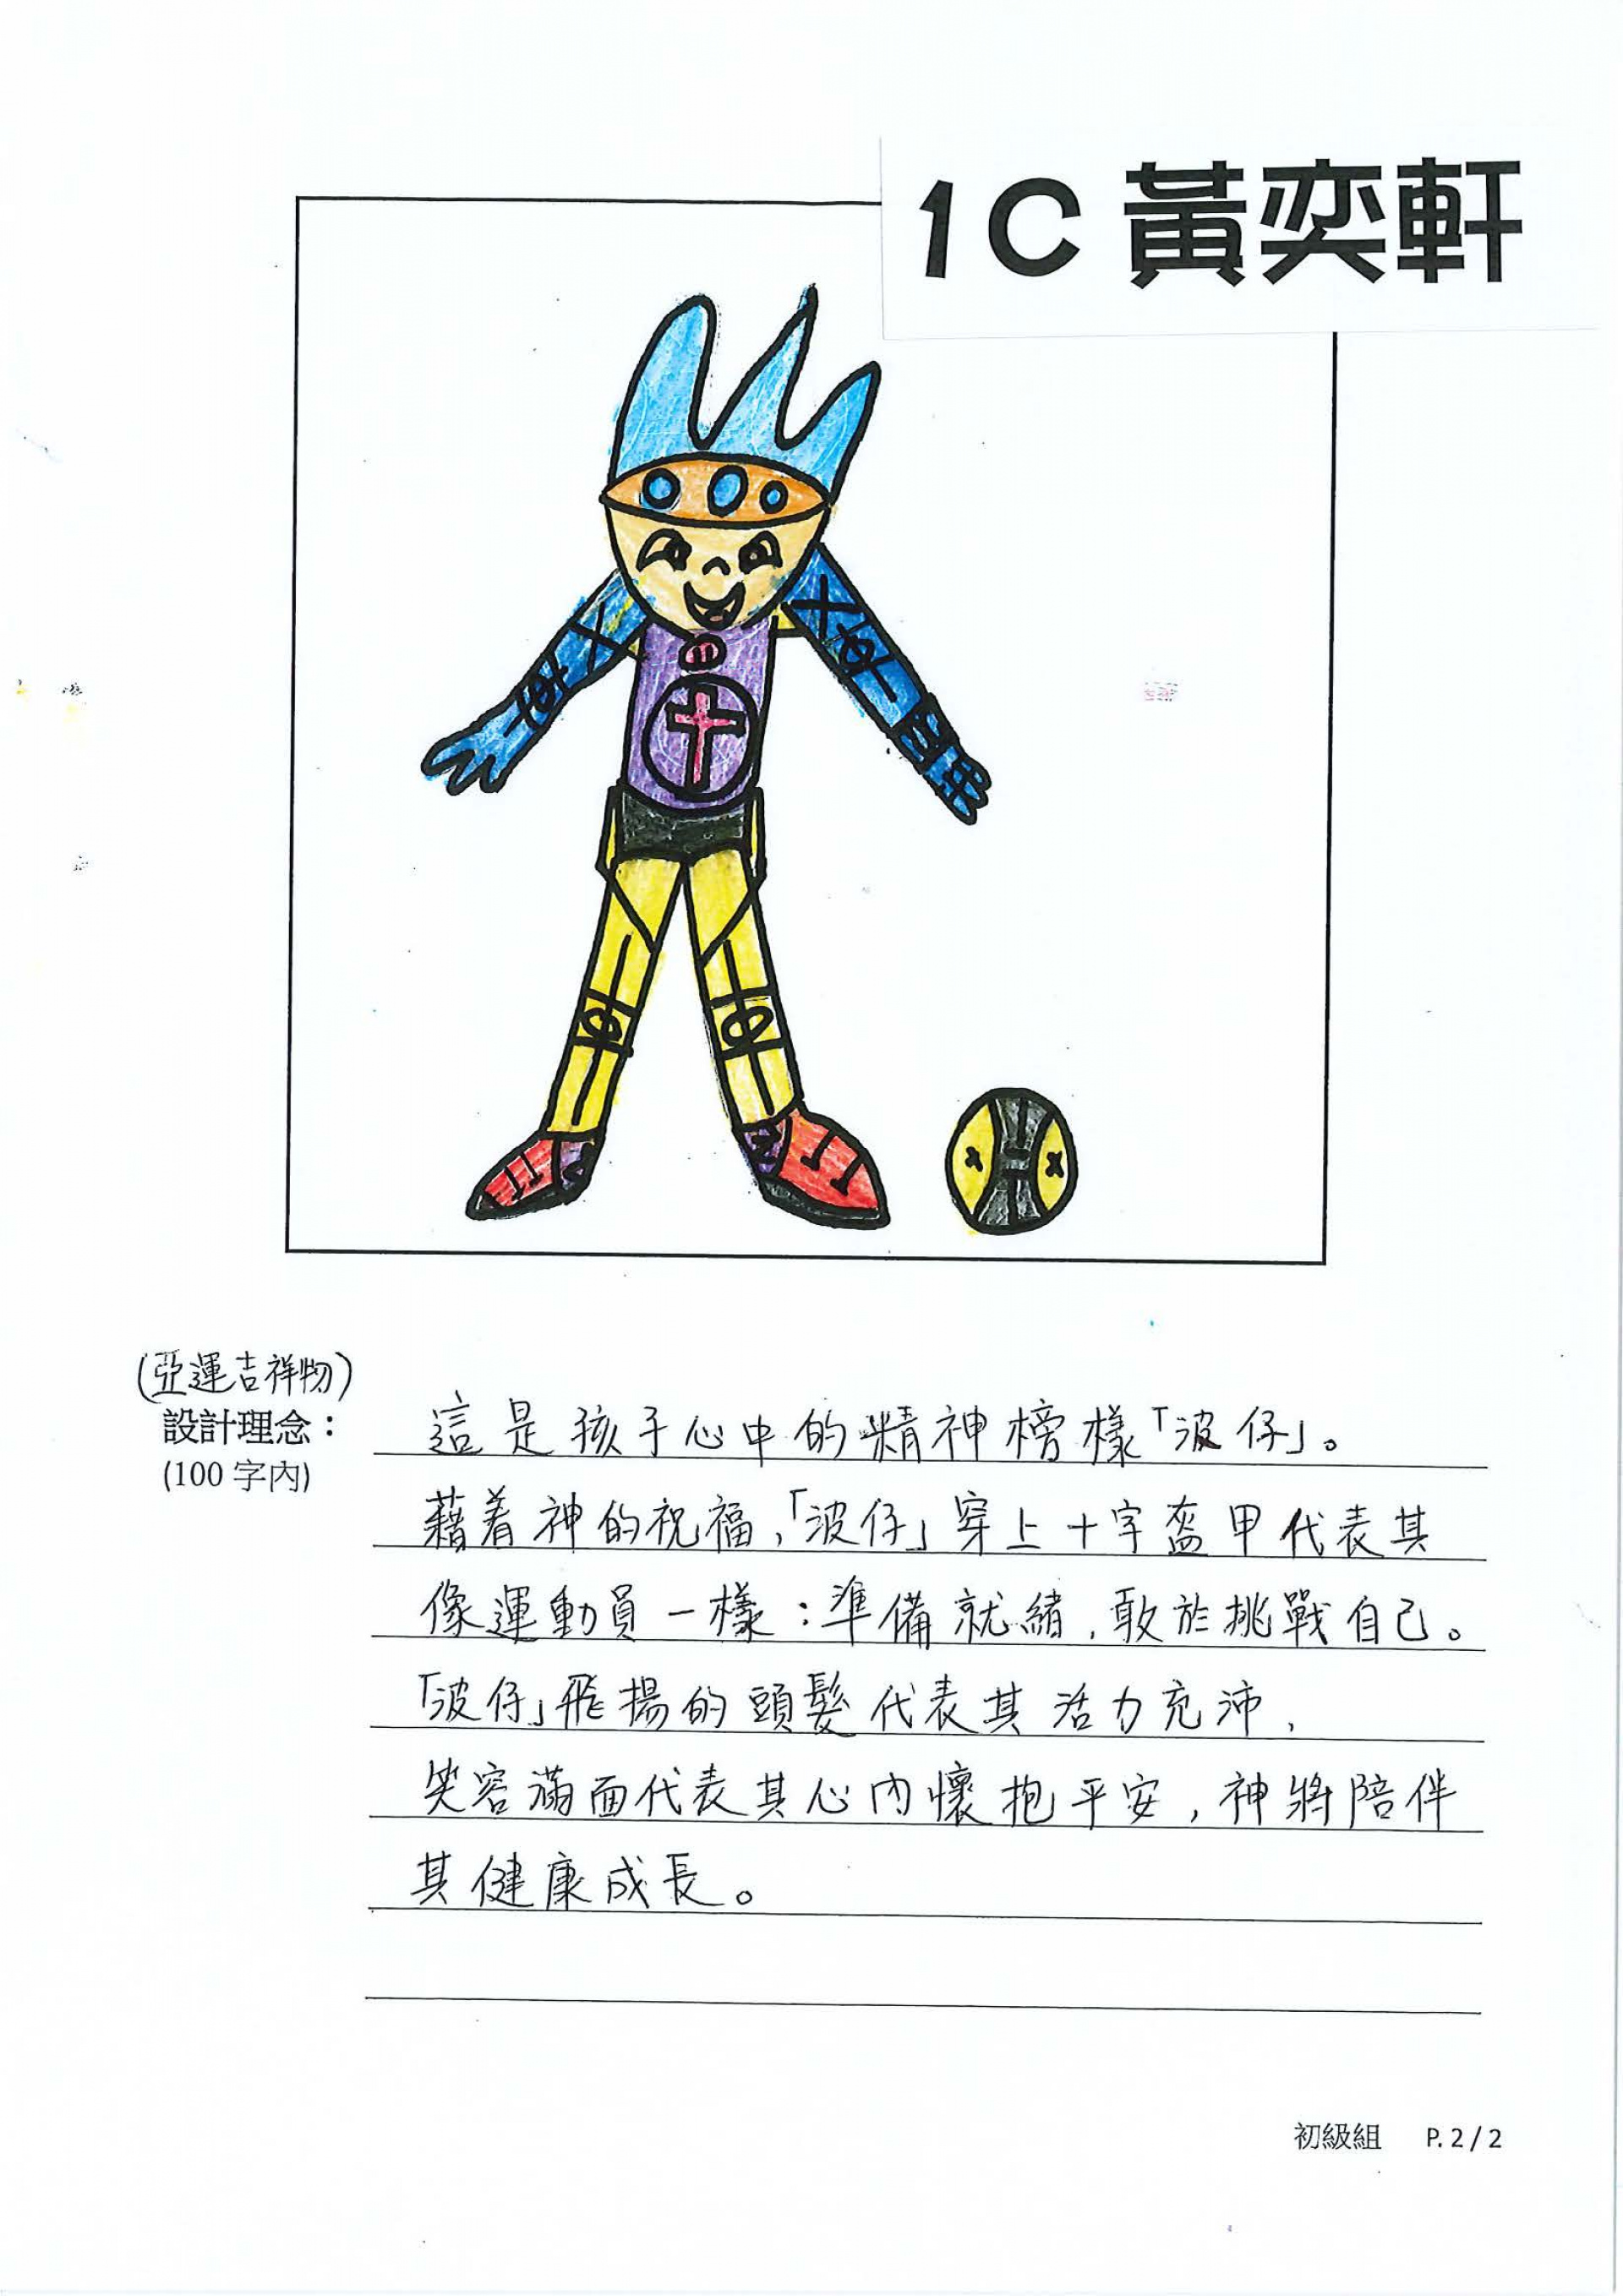 1C 黃奕軒
(亞運吉祥物)
設計理念：
(100 字內)
這是孩子心中的精神榜樣「波仔」。
藉着神的祝福，「波仔」穿上十字盔甲代表其
像運動員一樣：準備就緒，敢於挑戰自己。
「波仔」飛揚的頭髮代表其活力充沛，
笑容滿面代表其心內懷抱平安，神將陪伴
其健康成長。
初級組 P. 2 / 2